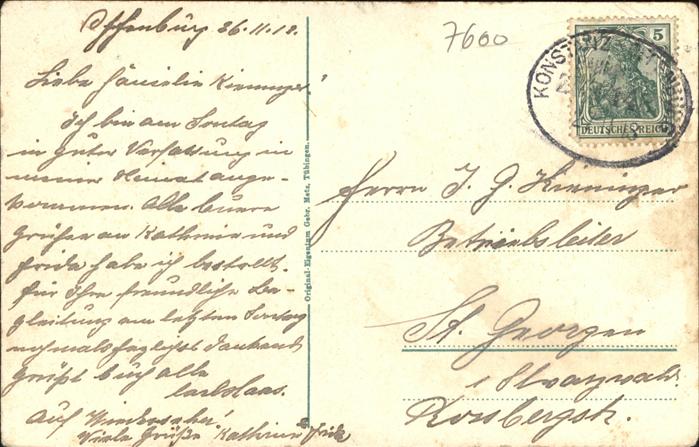 Offenburg 26.11.12.
Liebe Familie Kieninger!
Ich bin am Sontag
in guter Verfassung in
meiner Heimat ange-
kommen. Alle Euere
Grüße an Kathrine und
Frida habe ich bestellt.
für Ihre freundliche Be-
gleitung am letzten Sontag
nochmals herzlichst dankend
Grüßt Euch alle
Karl Haas.
Auf Wiedersehn!
Viele Grüße Kathrine & Frida
Original-Eigentum Gebr. Metz, Tübingen.
7600
5
DEUTSCHES REICH
KONSTANZ
Herrn J. G. Kieninger
Betriebsleiter
St. Georgen
i Schwarzwald
Rossbergstr.